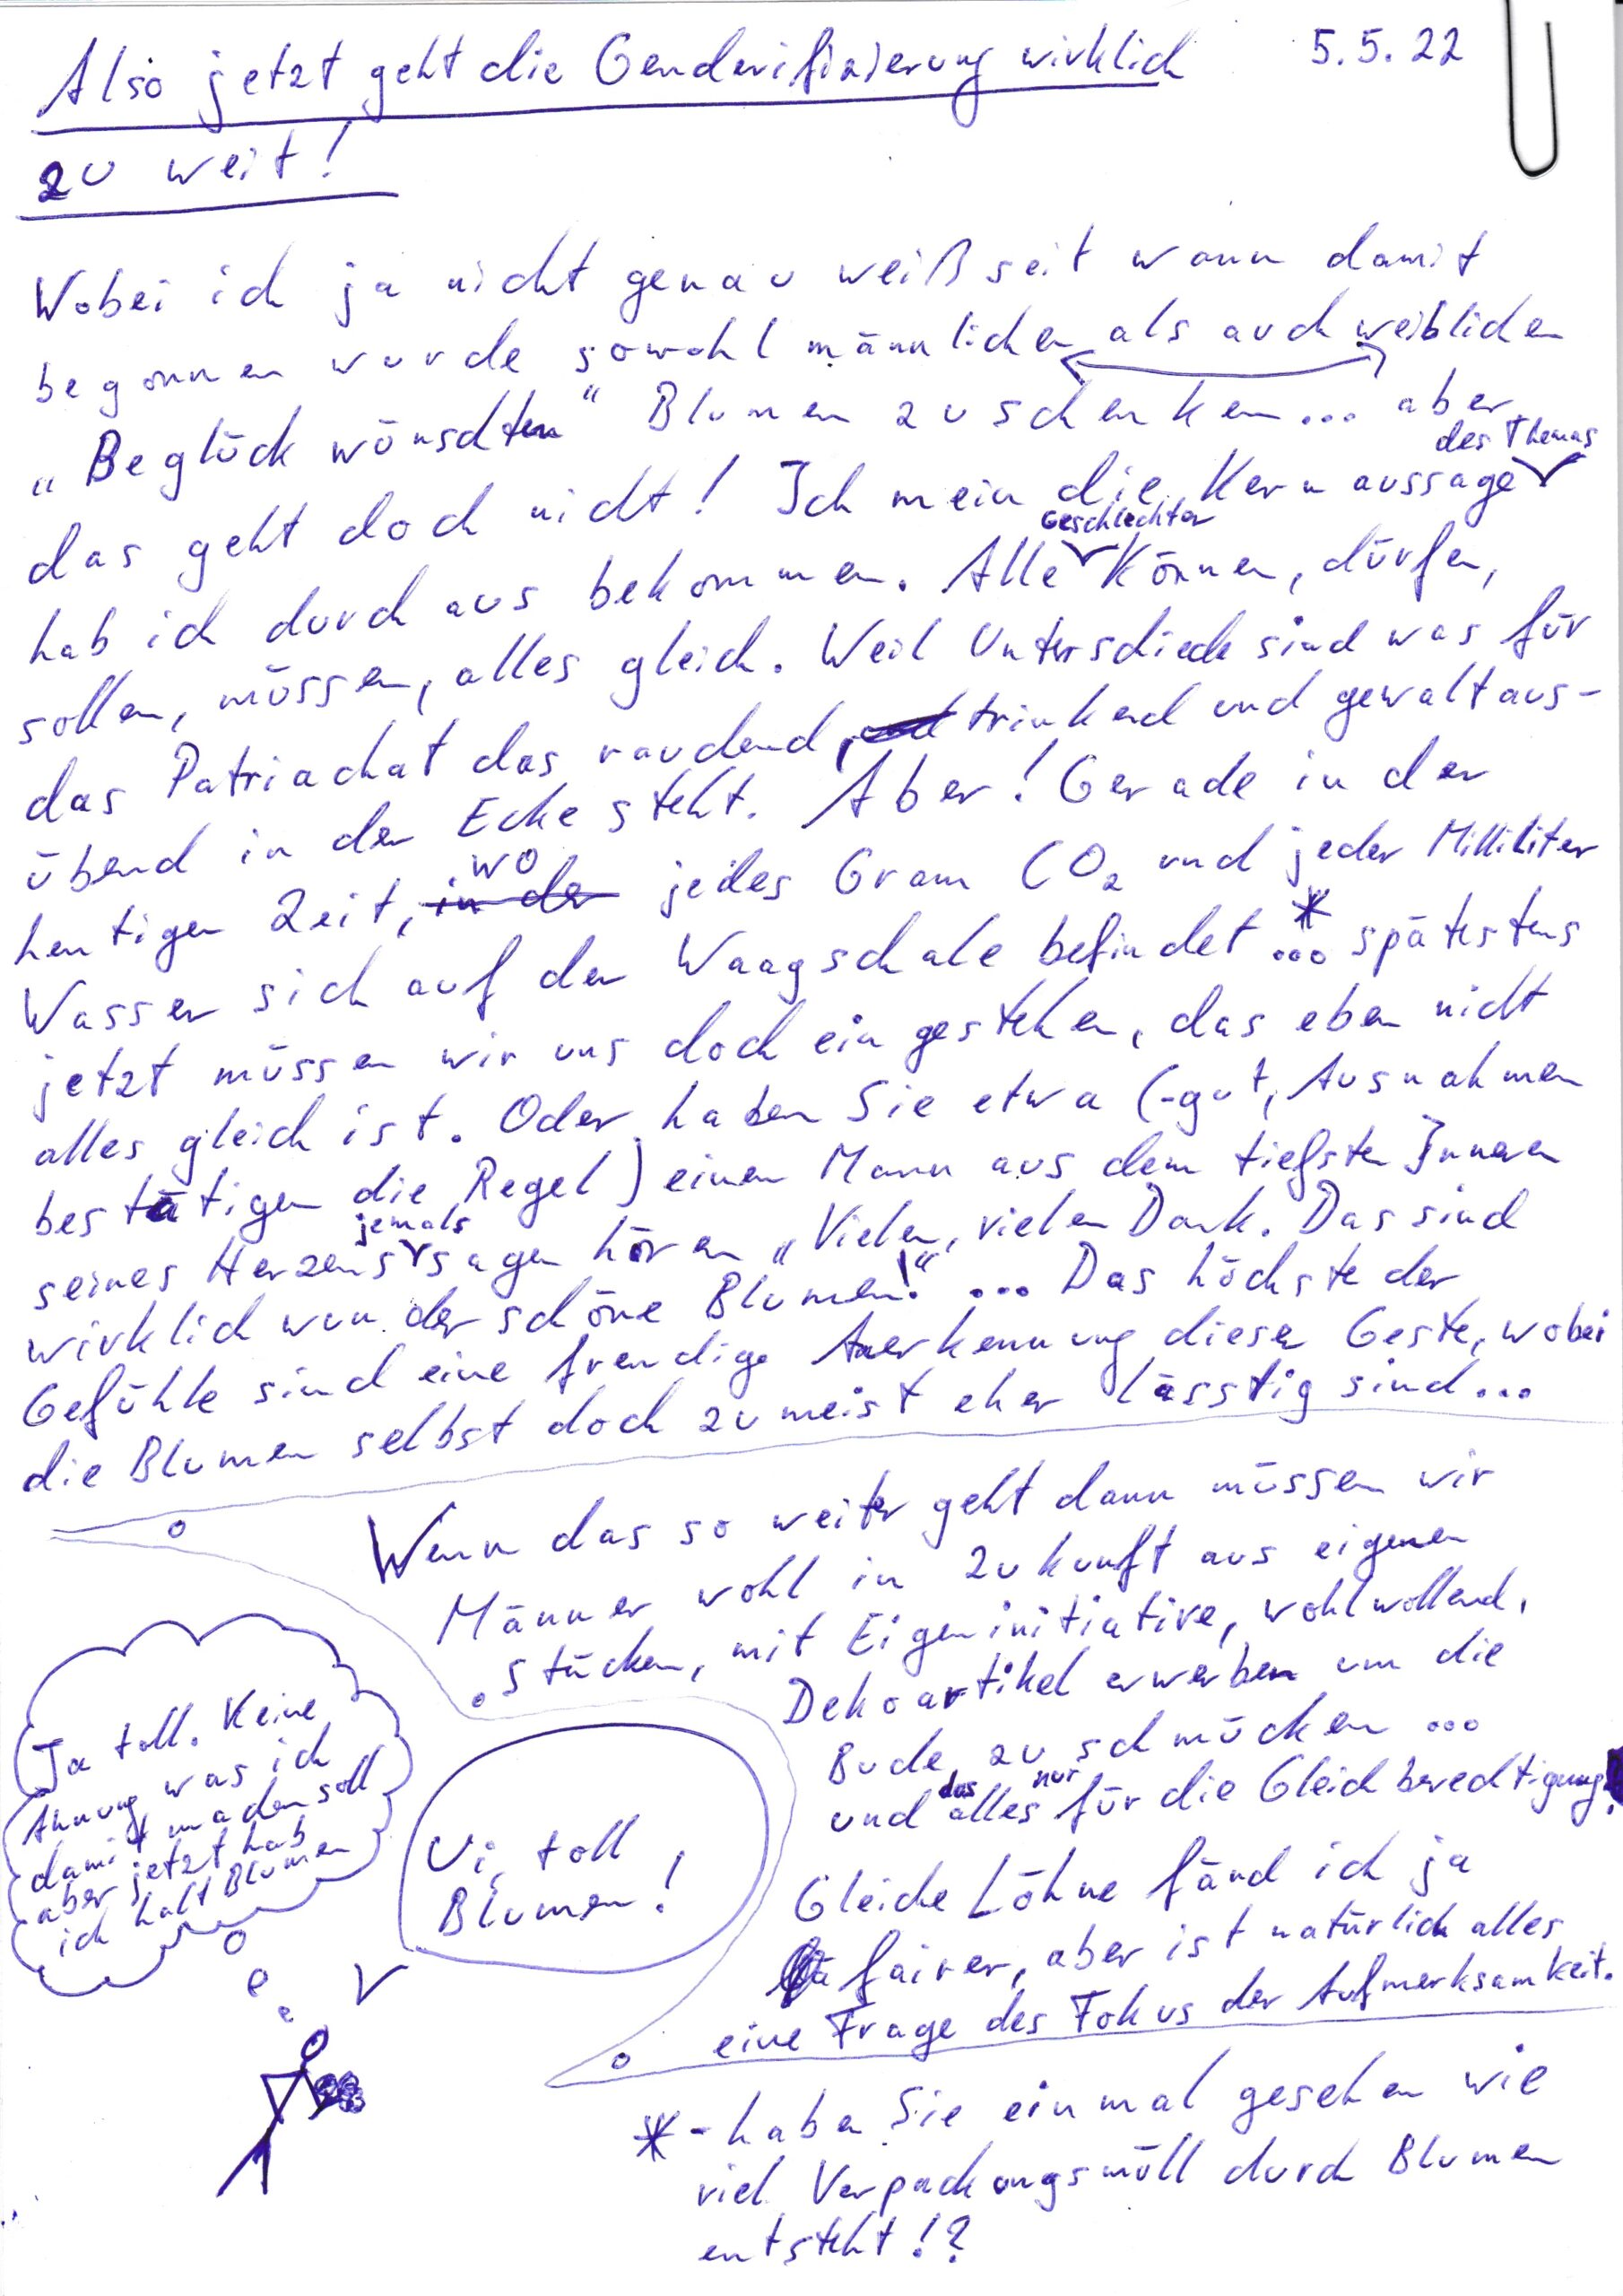 Also jetzt geht die Genderifizierung wirklich 5.5.22
zu weit!
Wobei ich ja nicht genau weiß seit wann damit
begonnen wurde sowohl männlichen als auch weiblichen
„Beglückwünschten" Blumen zu schenken... aber
das geht doch nicht! Ich mein die Kernaussage des Themas
hab ich durchaus bekommen. Alle Geschlechter können, dürfen,
sollen, müssen, alles gleich. Weil Unterschiede sind was für
das Patriachat das rauchend, trinkend und gewaltaus-
übend in der Ecke steht. Aber! Gerade in der
heutigen Zeit, wo jedes Gram CO₂ und jeder Milliliter
Wasser sich auf der Waagschale befindet...* spätestens
jetzt müssen wir uns doch ein gestehen, das eben nicht
alles gleich ist. Oder haben Sie etwa (-gut, Ausnahmen
bestätigen die Regel) einen Mann aus dem tiefsten Inneren
seines Herzens jemals sagen hören „Vielen, vielen Dank. Das sind
wirklich wunderschöne Blumen!" ... Das höchste der
Gefühle sind eine freudige Anerkennung dieser Geste, wobei
die Blumen selbst doch zumeist eher lässtig sind...
Wenn das so weiter geht dann müssen wir
Männer wohl in Zukunft aus eigenen
stücken, mit Eigeninitiative, wohlwollend,
Dekoartikel erwerben um die
Bude zu schmücken ...
und das alles nur für die Gleichberechtigung!
Gleiche Löhne fänd ich ja
fairer, aber ist natürlich alles
eine Frage des Fokus der Aufmerksamkeit.
Ja toll. Keine
Ahnung was ich
damit machen soll
aber jetzt hab
ich halt Blumen
Ui, toll
Blumen!
* - haben Sie einmal gesehen wie
viel Verpackungsmüll durch Blumen
entsteht!?